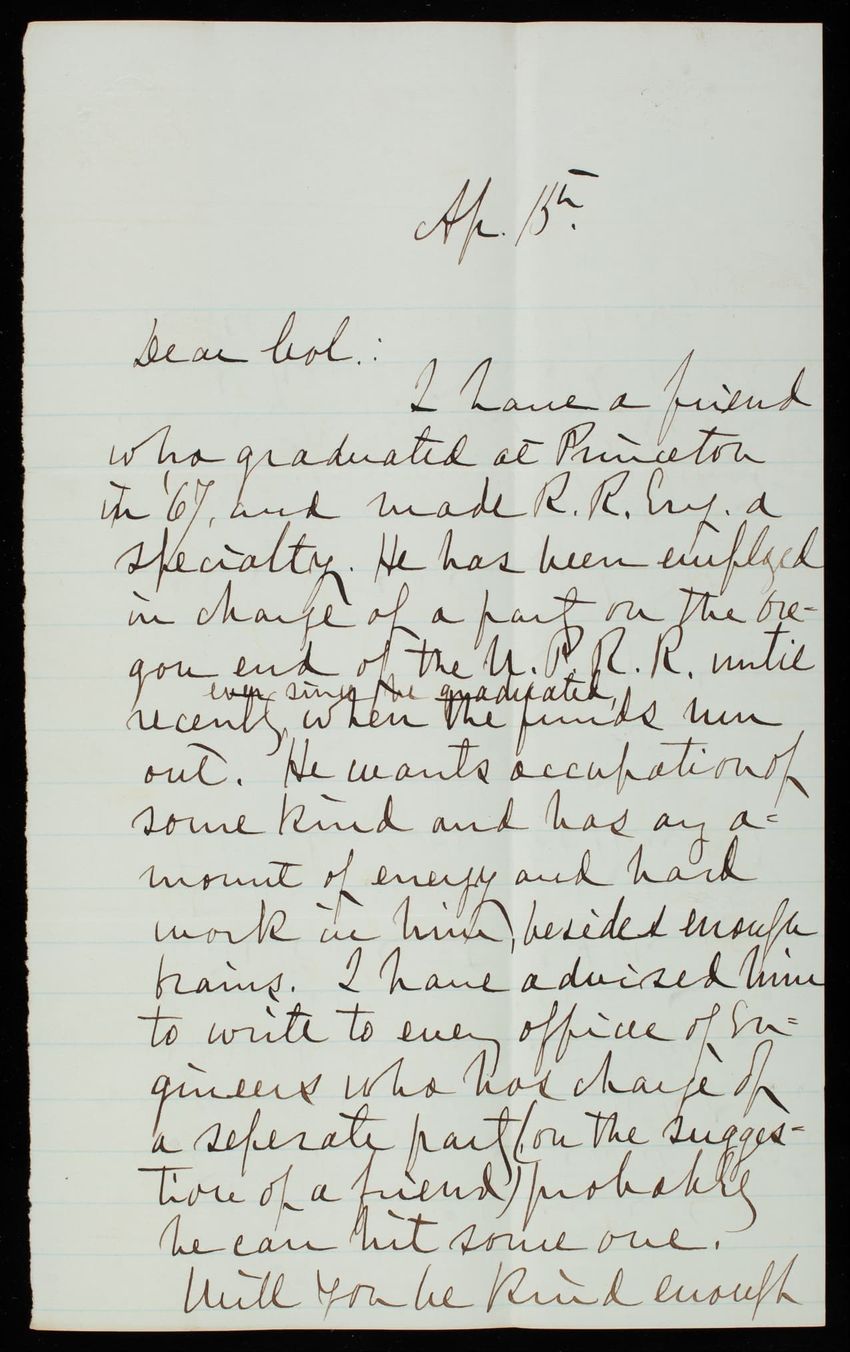 Ap. 15th.
Dear Col.:
I have a friend
who graduated at Princeton
in '67, and made R. R. Eng. a
specialty. He has been employed
in charge of a party on the Ore=
gon end of the U. P. R. R. until
ever since he graduated,
recently, when the funds run
out. He wants occupation of
some kind and has any a=
mount of energy and hard
work in him, besides enough
brains. I have advised him
to write to every officer of En=
gineers who has charge of
a seperate party (on the sugges=
tion of a friend) probably
he can hit some one.
Will you be kind enough